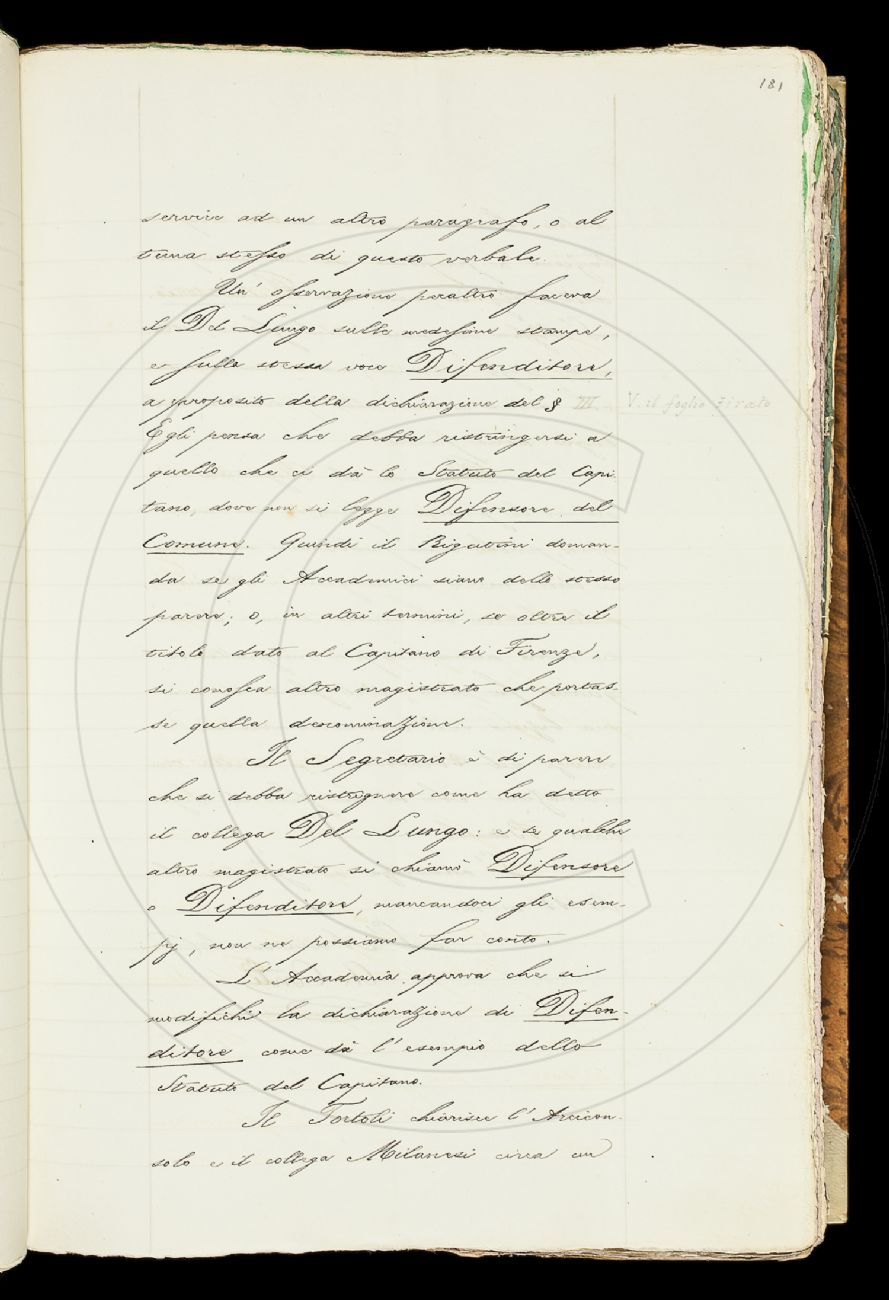 181
servire ad un altro paragrafo, o al
tema stesso di questo verbale.
Un' osservazione peraltro faceva
il Del Lungo sulle medesime stampe,
e sulla stessa voce Difenditore,
a proposito della dichiarazione del § III. V. il foglio tirato
Egli pensa che debba ristringersi a
quello che ci dà lo Statuto del Capi-
tano, dove non si legge Difensore del
Comune. Quindi il Rigutini doman-
da se gli Accademici siano dello stesso
parere; o, in altri termini, se oltre il
titolo dato al Capitano di Firenze,
si conosca altro magistrato che portas-
se quella denominazione.
Il Segretario è di parere
che si debba ristrignere come ha detto
il collega Del Lungo: e se qualche
altro magistrato si chiamò Difensore
o Difenditore, mancandoci gli esem-
pj, non ne possiamo far conto.
L' Accademia approva che si
modifichi la dichiarazione di Difen-
ditore come dà l' esempio dello
Statuto del Capitano.
Il Tortoli chiarisce l' Arcicon-
solo e il collega Milanesi circa un